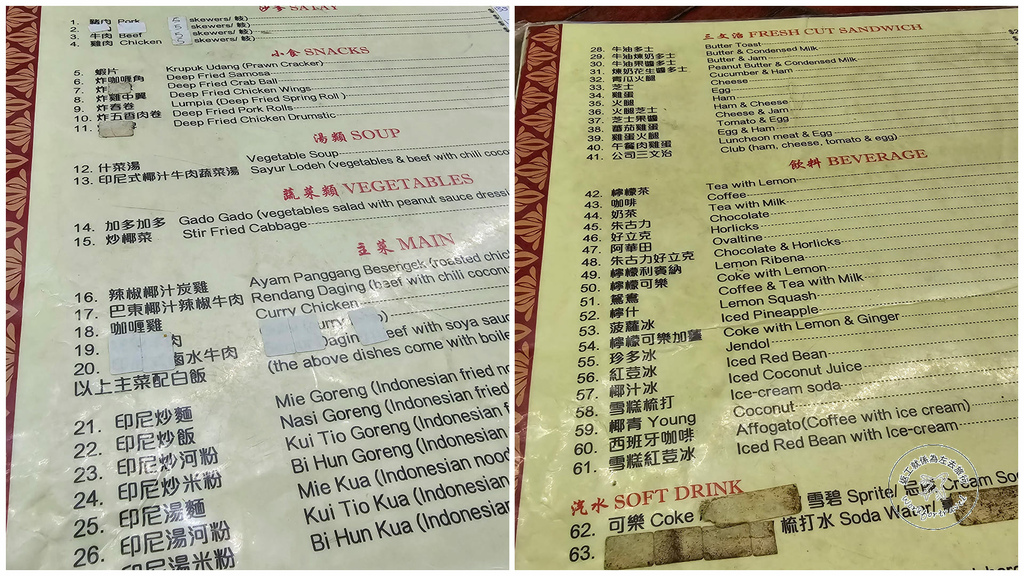 沙嗲 SATAY
1. 豬肉 Pork skewers/ 枝)
2. skewers/ 枝)
3. 牛肉 Beef skewers/ 枝)
4. 雞肉 Chicken skewers/ 枝)
小食 SNACKS
5. 蝦片 Krupuk Udang (Prawn Cracker)
6. 炸咖喱角 Deep Fried Samosa
7. 炸 Deep Fried Crab Ball
8. 炸雞中翼 Deep Fried Chicken Wings
9. 炸春卷 Lumpia (Deep Fried Spring Roll )
10. 炸五香肉卷 Deep Fried Pork Rolls
11. Deep Fried Chicken Drumstic
湯類 SOUP
12. 什菜湯 Vegetable Soup
13. 印尼式椰汁牛肉蔬菜湯 Sayur Lodeh (vegetables & beef with chili coco
蔬菜類 VEGETABLES
14. 加多加多 Gado Gado (vegetables salad with peanut sauce dressi
15. 炒椰菜 Stir Fried Cabbage
主菜 MAIN
16. 辣椒椰汁炭雞 Ayam Panggang Besengek (roasted chic
17. 巴東椰汁辣椒牛肉 Rendang Daging (beef with chili coconu
18. 咖喱雞 Curry Chicken
19. 肉 urry
20. 滷水牛肉 Daging eef with soya sauc
以上主菜配白飯 (the above dishes come with boile
21. 印尼炒麵 Mie Goreng (Indonesian fried no
22. 印尼炒飯 Nasi Goreng (Indonesian fried
23. 印尼炒河粉 Kui Tio Goreng (Indonesian fried
24. 印尼炒米粉 Bi Hun Goreng (Indonesian
25. 印尼湯麵 Mie Kua (Indonesian nood
26. 印尼湯河粉 Kui Tio Kua (Indonesian
印尼湯米粉 Bi Hun Kua (Indonesian
三文治 FRESH CUT SANDWICH
28. 牛油多士 Butter Toast
29. 牛油煉奶多士 Butter & Condensed Milk
30. 牛油果醬多士 Butter & Jam
31. 煉奶花生醬多士 Peanut Butter & Condensed Milk
32. 青瓜火腿 Cucumber & Ham
33. 芝士 Cheese
34. 雞蛋 Egg
35. 火腿 Ham
36. 火腿芝士 Ham & Cheese
37. 芝士果醬 Cheese & Jam
38. 蕃茄雞蛋 Tomato & Egg
39. 雞蛋火腿 Egg & Ham
40. 午餐肉雞蛋 Luncheon meat & Egg
41. 公司三文治 Club (ham, cheese, tomato & egg)
飲料 BEVERAGE
42. 檸檬茶 Tea with Lemon
43. 咖啡 Coffee
44. 奶茶 Tea with Milk
45. 朱古力 Chocolate
46. 好立克 Horlicks
47. 阿華田 Ovaltine
48. 朱古力好立克 Chocolate & Horlicks
49. 檸檬利賓納 Lemon Ribena
50. 檸檬可樂 Coke with Lemon
51. 鴛鴦 Coffee & Tea with Milk
52. 檸什 Lemon Squash
53. 菠蘿冰 Iced Pineapple
54. 檸檬可樂加薑 Coke with Lemon & Ginger
55. 珍多冰 Jendol
56. 紅荳冰 Iced Red Bean
57. 椰汁冰 Iced Coconut Juice
58. 雪糕梳打 Ice-cream soda
59. 椰青 Young Coconut
60. 西班牙咖啡 Affogato(Coffee with ice cream)
61. 雪糕紅荳冰 Iced Red Bean with Ice-cream
汽水 SOFT DRINK
62. 可樂 Coke 雪碧 Sprite Cream So
63. 梳打水 Soda Wat